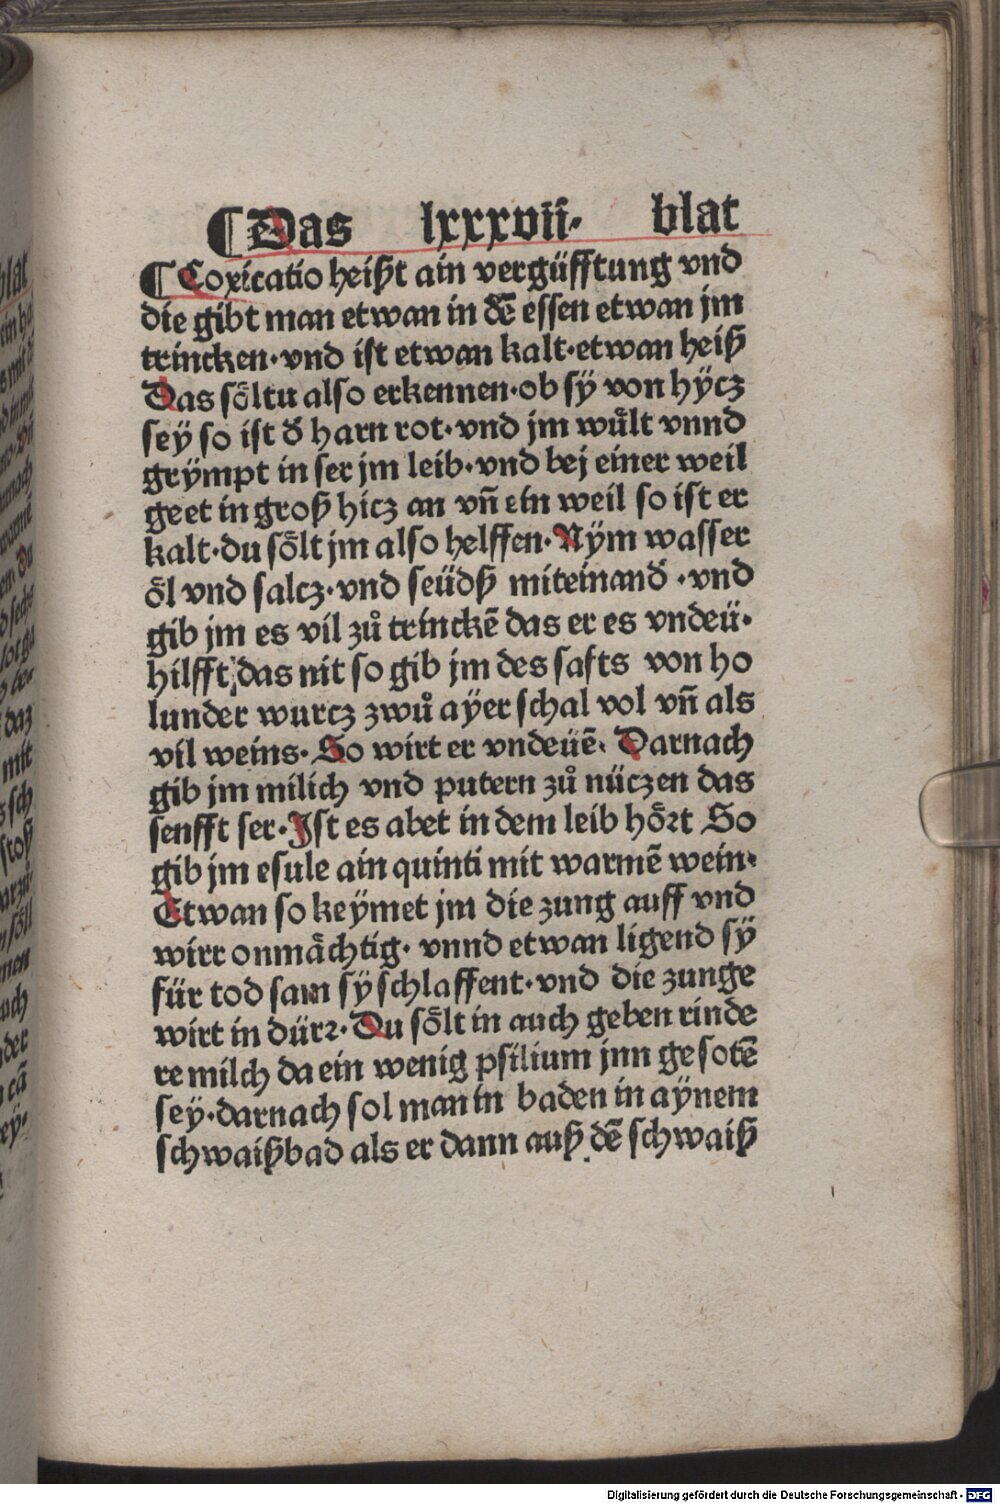 ¶Das lxxxvii· blat
¶Toxicatio heißt ain vergüfftung vnd
die gibt man etwan in dē essen etwan jm
trincken·vnd ist etwan kalt·etwan heiß
Das soͤltu also erkennen·ob sÿ von hÿcz
seÿ so ist đ harn rot·vnd jm wuͤlt vnnd
grÿmpt in ser jm leib·vnd bej einer weil
geet in groß hicz an vn̄ ein weil so ist er
kalt·du soͤlt jm also helffen·Nÿm wasser
oͤl vnd salcz·vnd seüdß miteinanđ ·vnd
gib jm es vil zů trinckē das er es vndeü·
hilfft das nit so gib jm des safts von ho
lunder wurcz zwů ayer schal vol vn̄ als
vil weins·So wirt er vndeüē· Darnach
gib jm milich vnd putern zů nüczen das
senfft ser·Jst es abet in dem leib hoͤꝛt So
gib jm esule ain quinti mit warmē wein·
Etwan so keÿmet jm die zung auff vnd
wirt onmaͤchtig· vnnd etwan ligend sÿ
für tod sam sÿ schlaffent·vnd die zunge
wirt in dürꝛ·Du soͤlt in auch geben rinde
re milch da ein wenig psilium jnn gesotē
seÿ·darnach sol man in baden in aÿnem
schwaißbad als er dann auß dē schwaiß
Digitalisierung gefördert durch die Deutsche Forschungsgemeinschaft - DFG